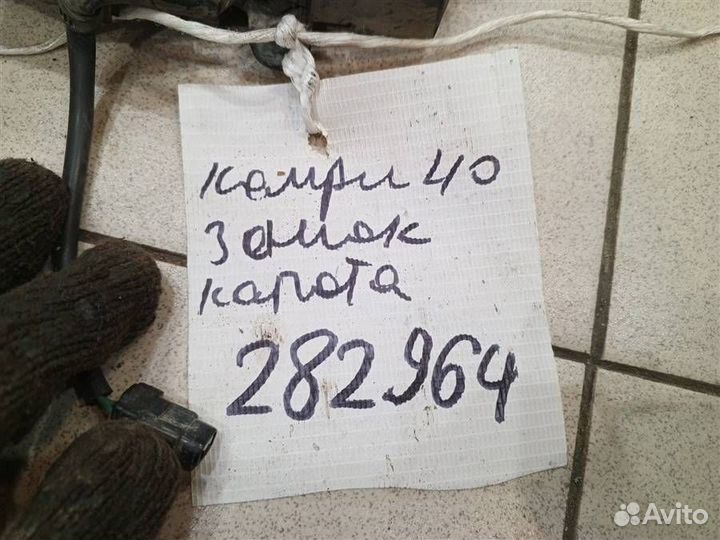 камри 40
замок
капота
282964
Avito